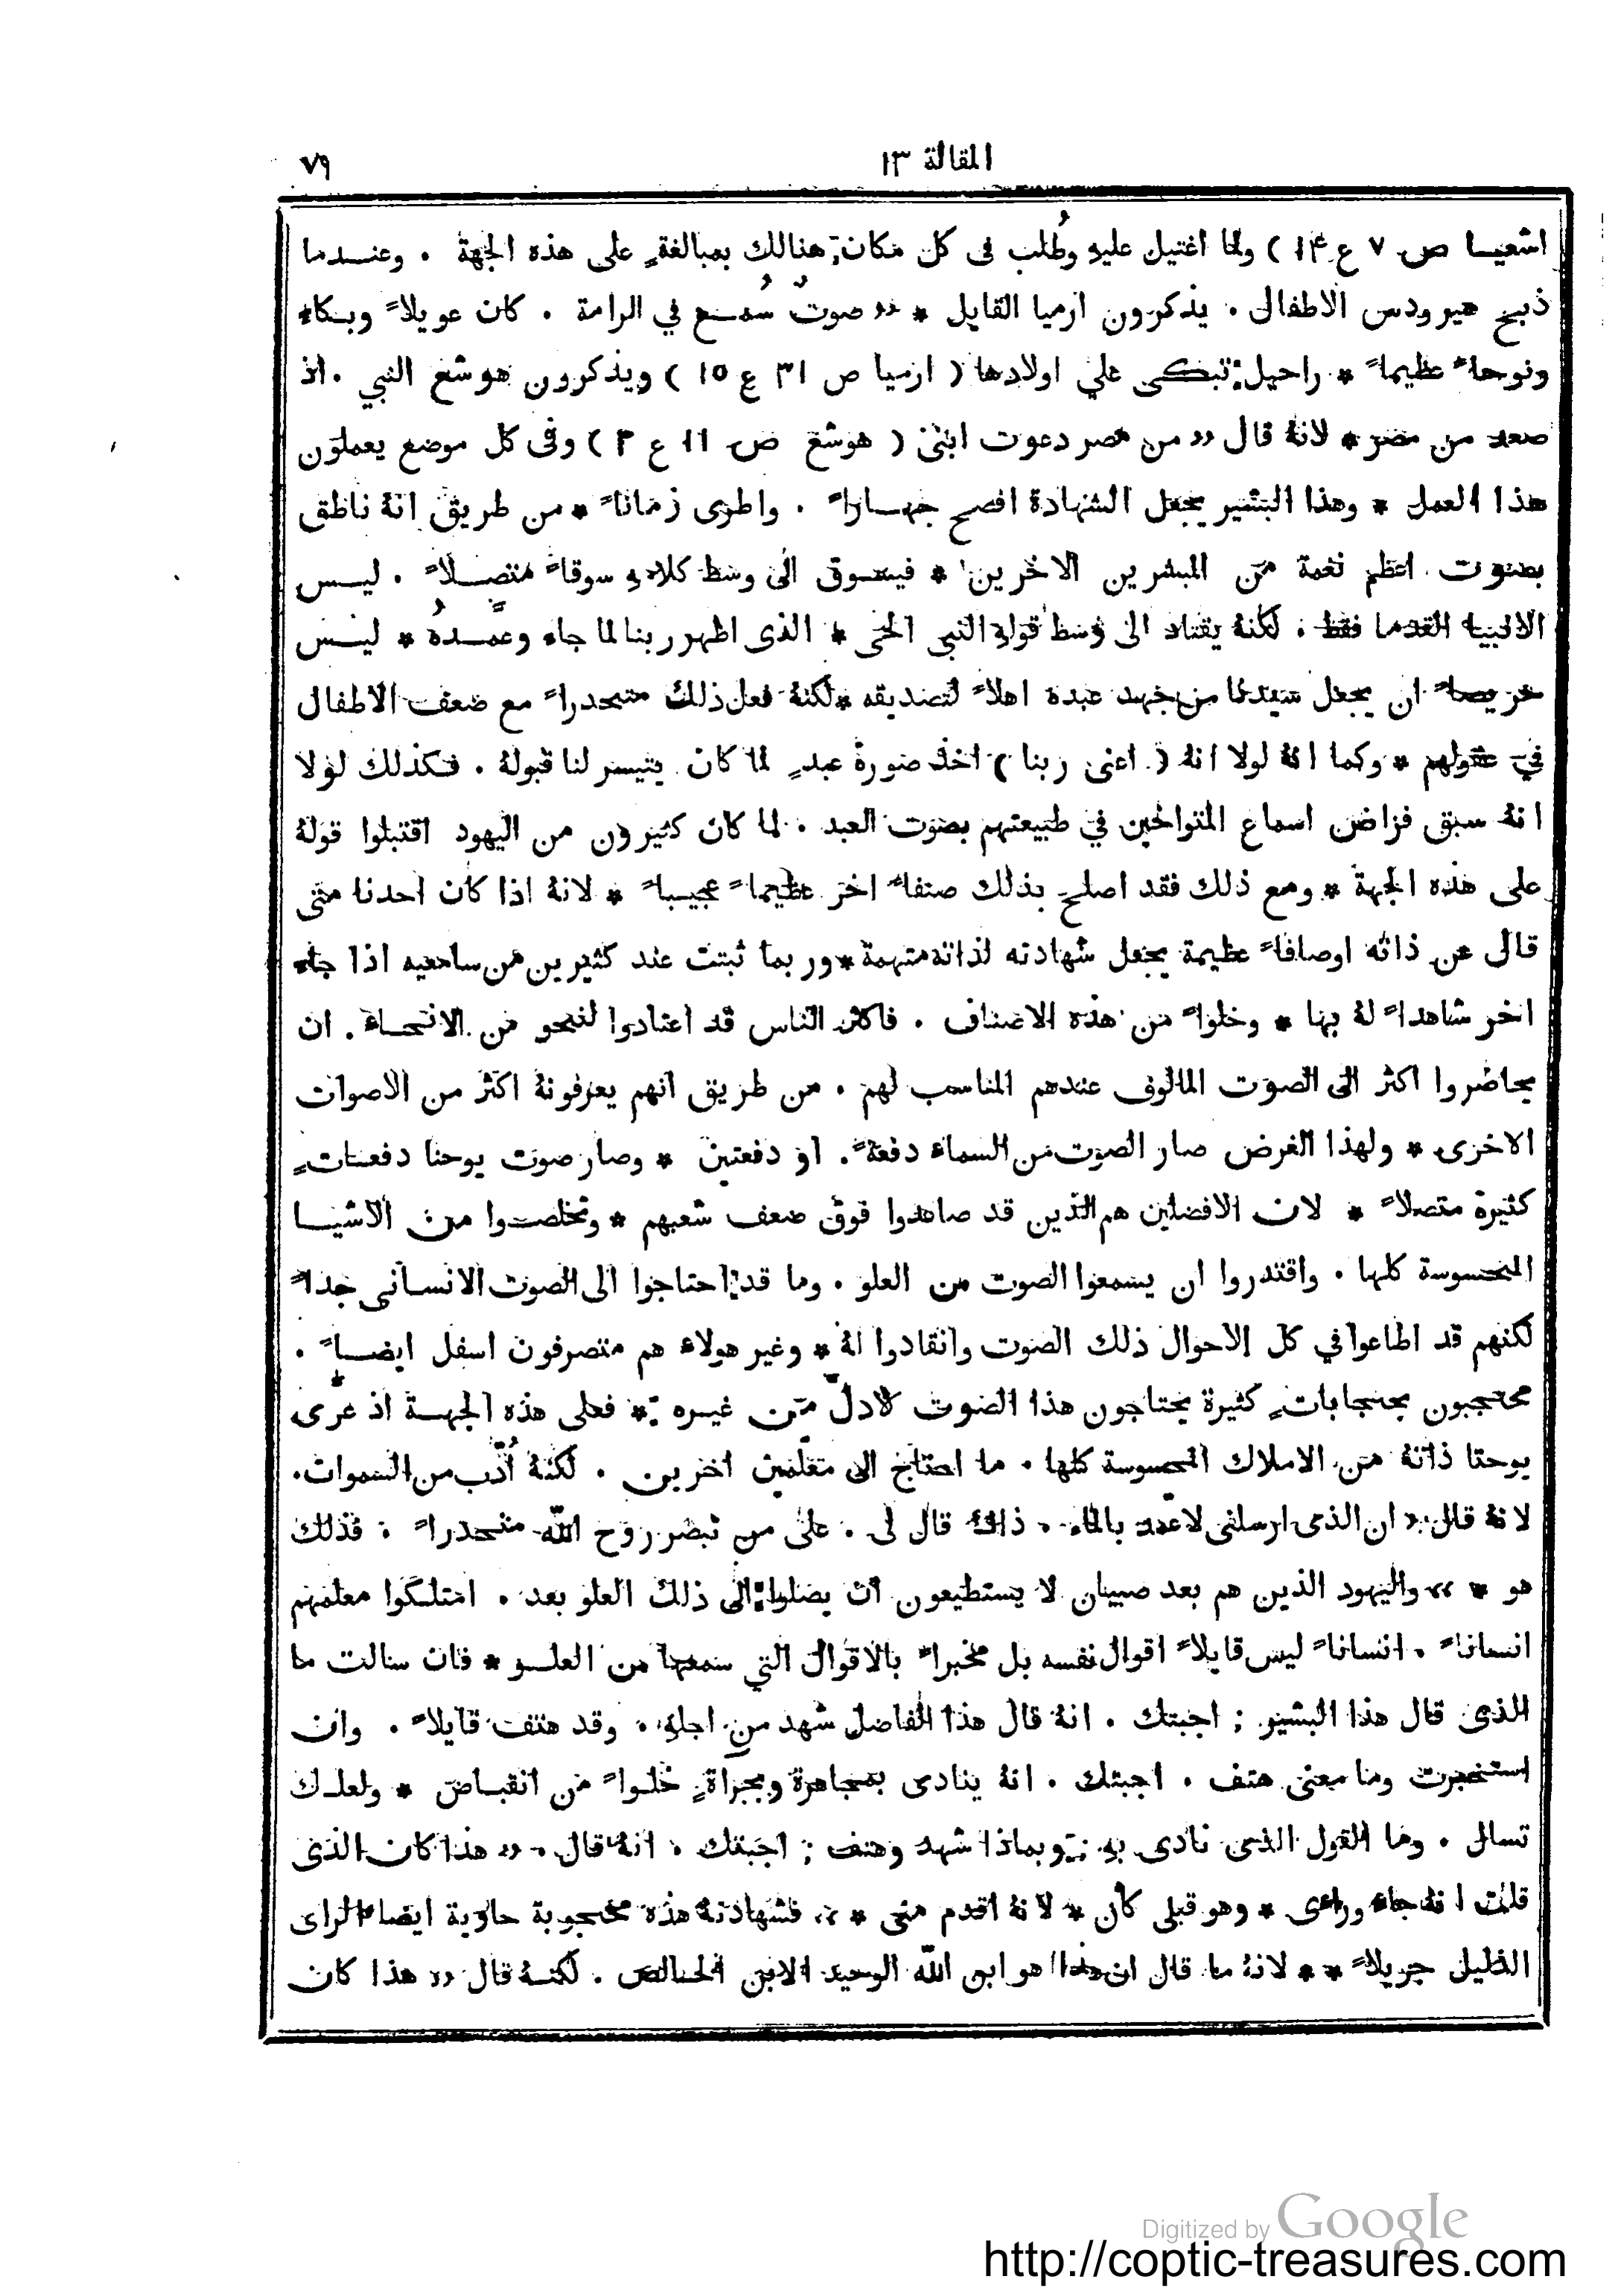 المقالة ١٣ ٧٩
اشعيا ص ٧ ع ١٤ ) ولما اغتيل عليه وطُلب فى كل مكان هنالك بمبالغةٍ على هذه الجهة . وعندما
ذبح هيرودس الاطفال . يذكرون ارميا القايل * « صوتٌ سُمع في الرامة . كان عويلاً وبكاء
ونوحاً عظيماً * راحيل تبكى على اولادها ( ارميا ص ٣١ ع ١٥ ) ويذكرون هوشع النبي . اذ
صعد من مصر * لانهُ قال « من مصر دعوت ابنى ( هوشع ص ١١ ع ٣ ) وفى كل موضع يعملون
هذا العمل * وهذا البشير يجعل الشهادة افصح جهاراً . واطرى زماناً * من طريق انهُ ناطق
بصوت اعظم نغمة من المبشرين الاخرين * فيسوق الى وسط كلامهِ سوقاً متصلاً . ليس
الانبياء القدما فقط . لكنهُ يقتاد الى وسط قولهِ النبي الحى * الذى اظهر ربنا لما جاء وعمَّدهُ * ليس
حريصاً ان يجعل سيدنا من جهد عبده اهلاً لتصديقه * لكنهُ فعل ذلك متحدراً مع ضعف الاطفال
في عقولهم * وكما انهُ لولا انهُ ( اعنى ربنا ) اخذ صورة عبدٍ لما كان يتيسر لنا قبولهُ . فكذلك لولا
انهُ سبق فراض اسماع المتواخين في طبيعتهم بصوت العبد . لما كان كثيرون من اليهود اقتبلوا قولهُ
على هذه الجهة * ومع ذلك فقد اصلح بذلك صنفاً اخر عظيماً عجيباً * لانهُ اذا كان احدنا متى
قال عن ذاته اوصافاً عظيمة يجعل شهادته لذاته متهمة * وربما ثبتت عند كثيرين من سامعيه اذا جاء
اخر شاهداً لهُ بها * وخلواً من هذه الاصناف . فاكثر الناس قد اعتادوا لنحو من الانحاء . ان
يحاضروا اكثر الى الصوت المالوف عندهم المناسب لهم . من طريق انهم يعرفونهُ اكثر من الاصوات
الاخرى * ولهذا الغرض صار الصوت من السماء دفعةً . او دفعتين * وصار صوت يوحنا دفعاتٍ
كثيرة متصلاً * لان الافضلين هم الذين قد صاعدوا فوق ضعف شعبهم * وتخلصوا من الاشيا
المحسوسة كلها . واقتدروا ان يسمعوا الصوت من العلو . وما قد احتاجوا الى الصوت الانسانى جداً
لكنهم قد اطاعوا في كل الاحوال ذلك الصوت وانقادوا لهُ * وغير هولاء هم متصرفون اسفل ايضاً .
محتجبون بحجاباتٍ كثيرة يحتاجون هذا الصوت لادلّ من غيره * فعلى هذه الجهة اذ عرَّى
يوحنا ذاتهُ من الاملاك المحسوسة كلها . ما احتاج الى معلمين اخرين . لكنهُ اُدّب من السموات .
لانهُ قال « ان الذى ارسلنى لاعمد بالماء . ذاك قال لى . على من تبصر روح اللّه منحدراً . فذلك
هو * » واليهود الذين هم بعد صبيان لا يستطيعون ان يصلوا الى ذلك العلو بعد . امتلكوا معلمهم
انساناً . انساناً ليس قايلاً اقوال نفسه بل مخبراً بالاقوال التي سمعها من العلو * فان سالت ما
الذى قال هذا البشير ; اجبتك . انهُ قال هذا الفاضل شهد من اجلهِ . وقد هتف قايلاً . وان
استخبرت وما معنى هتف . اجبتك . انهُ ينادى بمجاهرة وبجراةٍ خلواً من انقباض * ولعلك
تسال . وما القول الذى نادى بهِ ; وبماذا شهد وهتف ; اجبتك . انهُ قال . « هذا كان الذى
قلت انهُ جاء وراءى * وهو قبلى كان * لانهُ اقدم منى * » فشهادتهُ هذه محجوبة حاوية ايضاً الراى
القليل جزيلاً * * لانهُ ما قال ان هذا هو ابن اللّه الوحيد الابن الخالص . لكنهُ قال « هذا كان
Digitized by Google
http://coptic-treasures.com